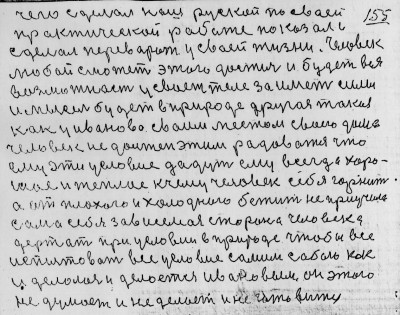 чего сделал наш руской по своей 155
практической работе показал и
сделал переворот у своей жизни. Человек
любой сможет этого достич и будет вся
возможност у своем теле заимет силы
имысел будет в природе другая такая
как у иваново своим местом своего дела
человек не должен этим радоватся что
ему эти условие дадут ему всегда хоро-
шае и теплае к чему человек себя горнит.
а от плохого и холодного бежит не приучил
сама себя зависемая сторона человека
держат при условии в природе чтобы все
испытоват все условие самим сабою как
и делалоя и делоется Ивановым, он этого
не думает и не делает и не